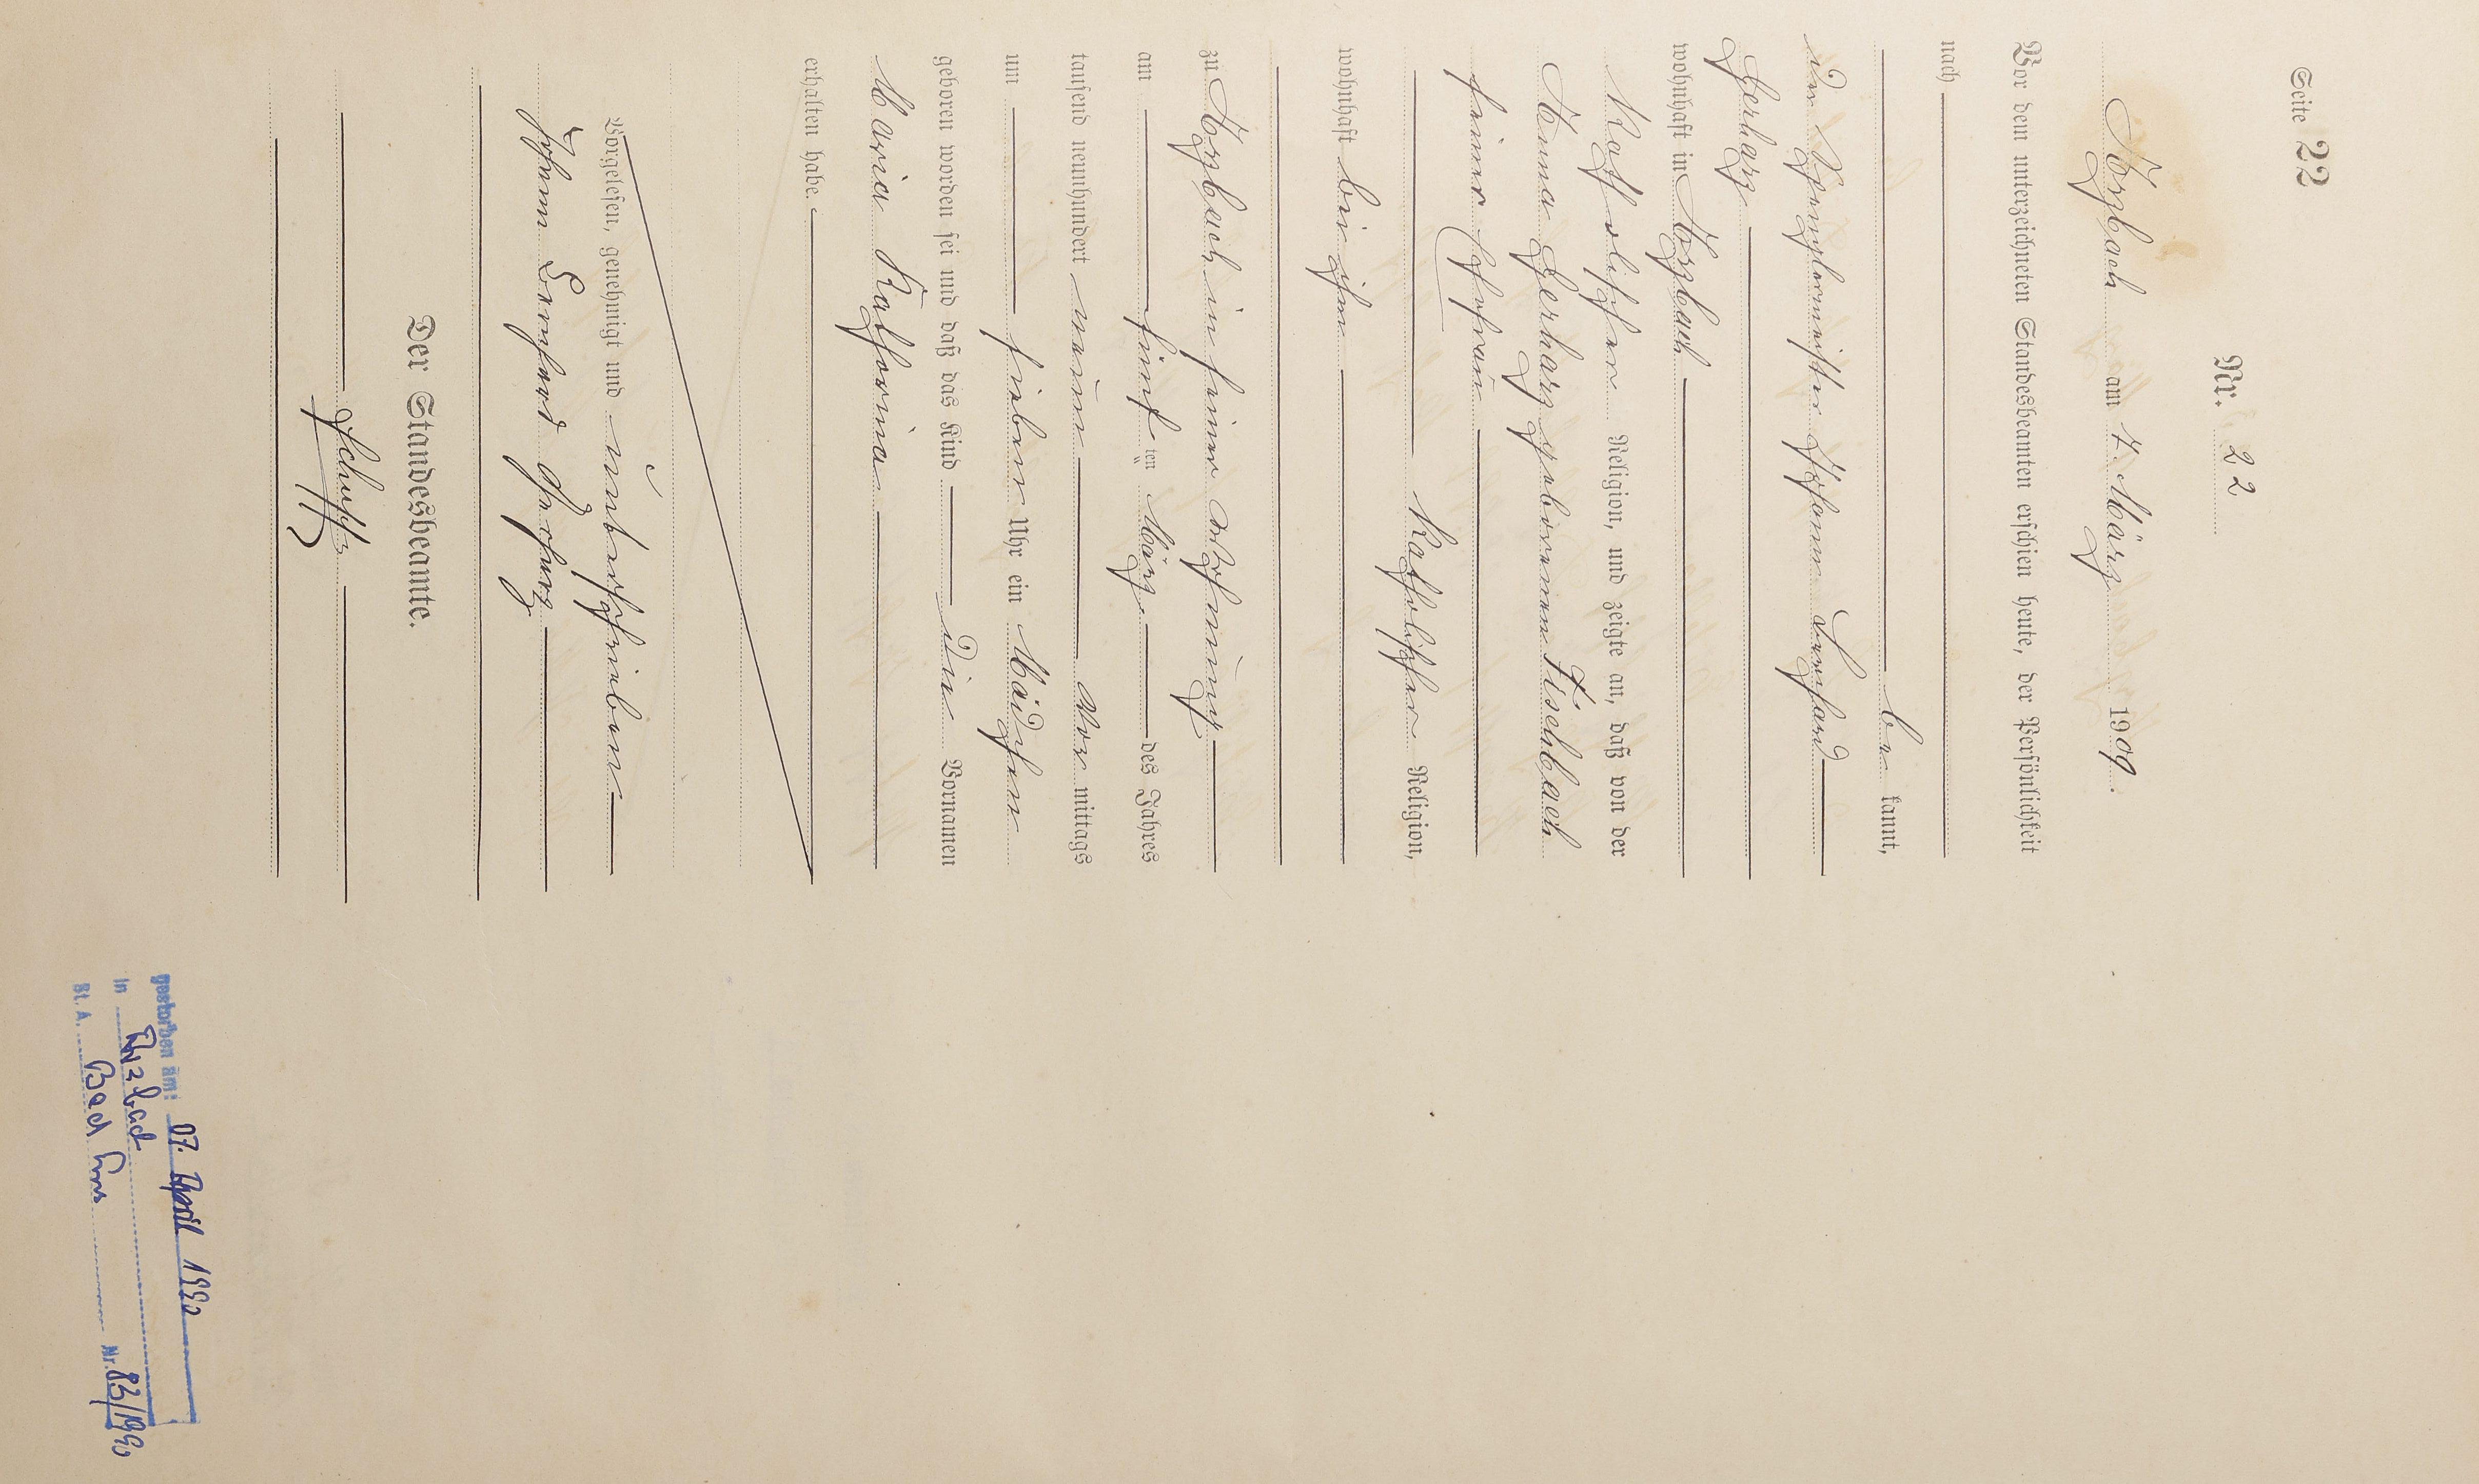 Seite 22
Nr. 22
Arzbach am 7. März 1909.
Vor dem unterzeichneten Standesbeamten erschien heute, der Persönlichkeit
nach
be kannt,
der Spenglermeister Johann Bernhard
Gerharz
wohnhaft in Arzbach
katholischer Religion, und zeigte an, daß von der
Anna Gerharz geborenen Fischbach
seiner Ehefrau
katholischer Religion,
wohnhaft bei ihm
zu Arzbach in seiner Wohnung
am fünf ten März des Jahres
tausend neunhundert neun Vor mittags
um sieben Uhr ein Mädchen
geboren worden sei und daß das Kind die Vornamen
Maria Katharina
erhalten habe.
Vorgelesen, genehmigt und unterschrieben
Johann Bernhard Gerharz
Der Standesbeamte.
Schultz
gestorben am: 07. April 1990
in Arzbach
St. A. Bad Ems Nr. 83/1990